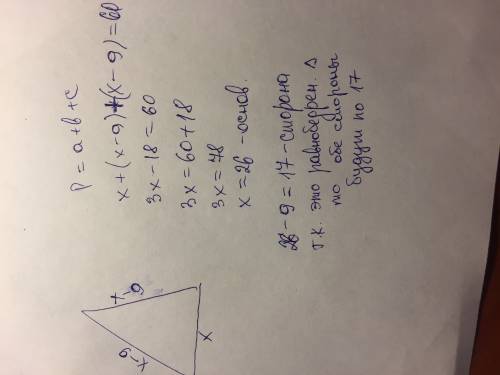 P = a+b+c
x+(x-9)+(x-9)=60
3x-18=60
3x=60+18
3x=78
x=26 -основ.
26-9=17-сторона
т.к. это равнобедрен. Δ
то обе стороны
будут по 17
x-9
x-9
x